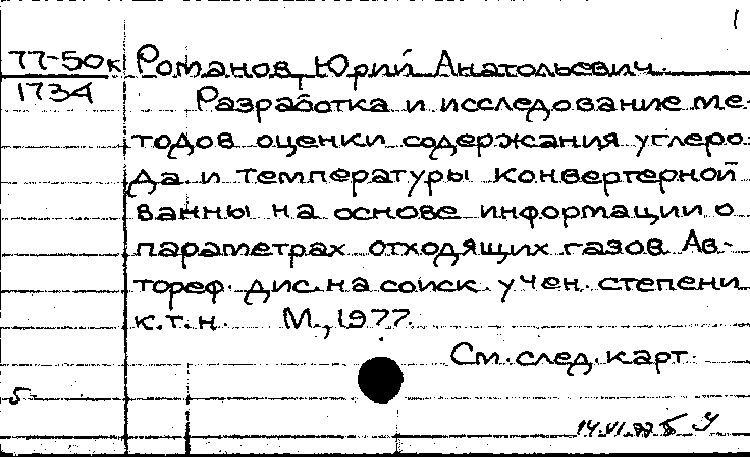 1
77-50к Романов, Юрий Анатольевич.
1734
Разработка и исследование ме-
тодов оценки содержания углеро-
да и температуры конвертерной
ванны на основе информации о
параметрах отходящих газов. Ав-
тореф. дис. на соиск. учен. степени
к.т.н. М., 1977.
См. след. карт.
5
14.VI.77